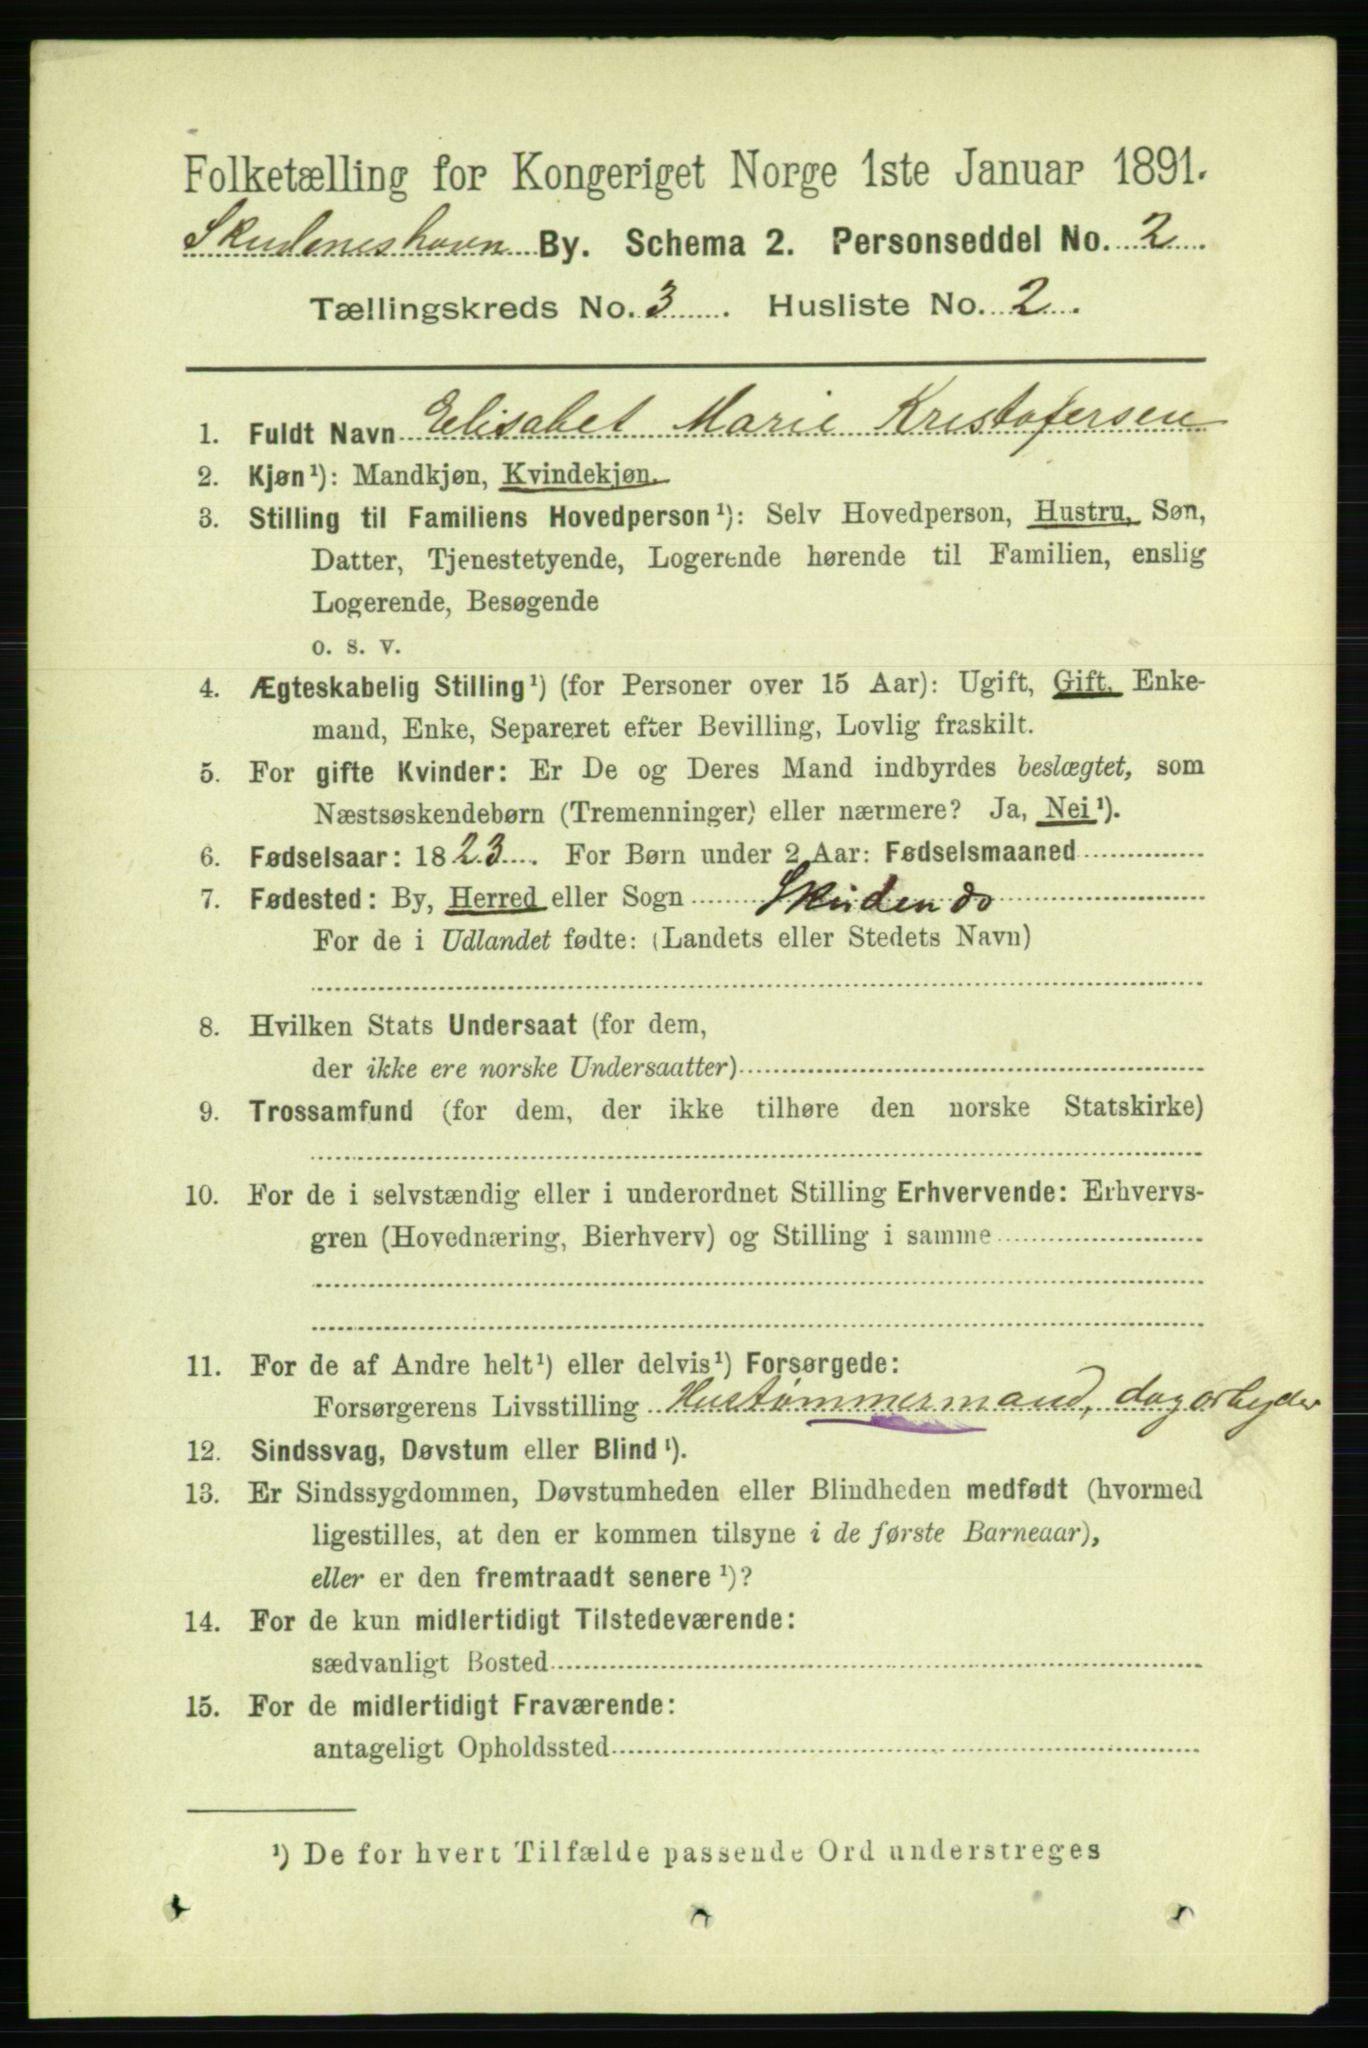 Folketælling for Kongeriget Norge 1ste Januar 1891.
Skudeneshavn By. Schema 2. Personseddel No. 2
Tællingskreds No. 3. Husliste No. 2.
1. Fuldt Navn Elisabet Marie Kristofersen
2. Kjøn¹): Mandkjøn, Kvindekjøn.
3. Stilling til Familiens Hovedperson¹): Selv Hovedperson, Hustru, Søn,
Datter, Tjenestetyende, Logerende hørende til Familien, enslig
Logerende, Besøgende
o. s. v.
4. Ægteskabelig Stilling¹) (for Personer over 15 Aar): Ugift, Gift, Enke-
mand, Enke, Separeret efter Bevilling, Lovlig fraskilt.
5. For gifte Kvinder: Er De og Deres Mand indbyrdes beslægtet, som
Næstsøskendebørn (Tremenninger) eller nærmere? Ja, Nei¹).
6. Fødselsaar: 1823. For Børn under 2 Aar: Fødselsmaaned
7. Fødested: By, Herred eller Sogn Skuden do
For de i Udlandet fødte: (Landets eller Stedets Navn)
8. Hvilken Stats Undersaat (for dem,
der ikke ere norske Undersaatter)
9. Trossamfund (for dem, der ikke tilhøre den norske Statskirke)
10. For de i selvstændig eller i underordnet Stilling Erhvervende: Erhvervs-
gren (Hovednæring, Bierhverv) og Stilling i samme
11. For de af Andre helt¹) eller delvis¹) Forsørgede:
Forsørgerens Livsstilling Hustømmermand, dagarbyder
12. Sindssvag, Døvstum eller Blind¹).
13. Er Sindssygdommen, Døvstumheden eller Blindheden medfødt (hvormed
ligestilles, at den er kommen tilsyne i de første Barneaar),
eller er den fremtraadt senere¹)?
14. For de kun midlertidigt Tilstedeværende:
sædvanligt Bosted
15. For de midlertidigt Fraværende:
antageligt Opholdssted
¹) De for hvert Tilfælde passende Ord understreges